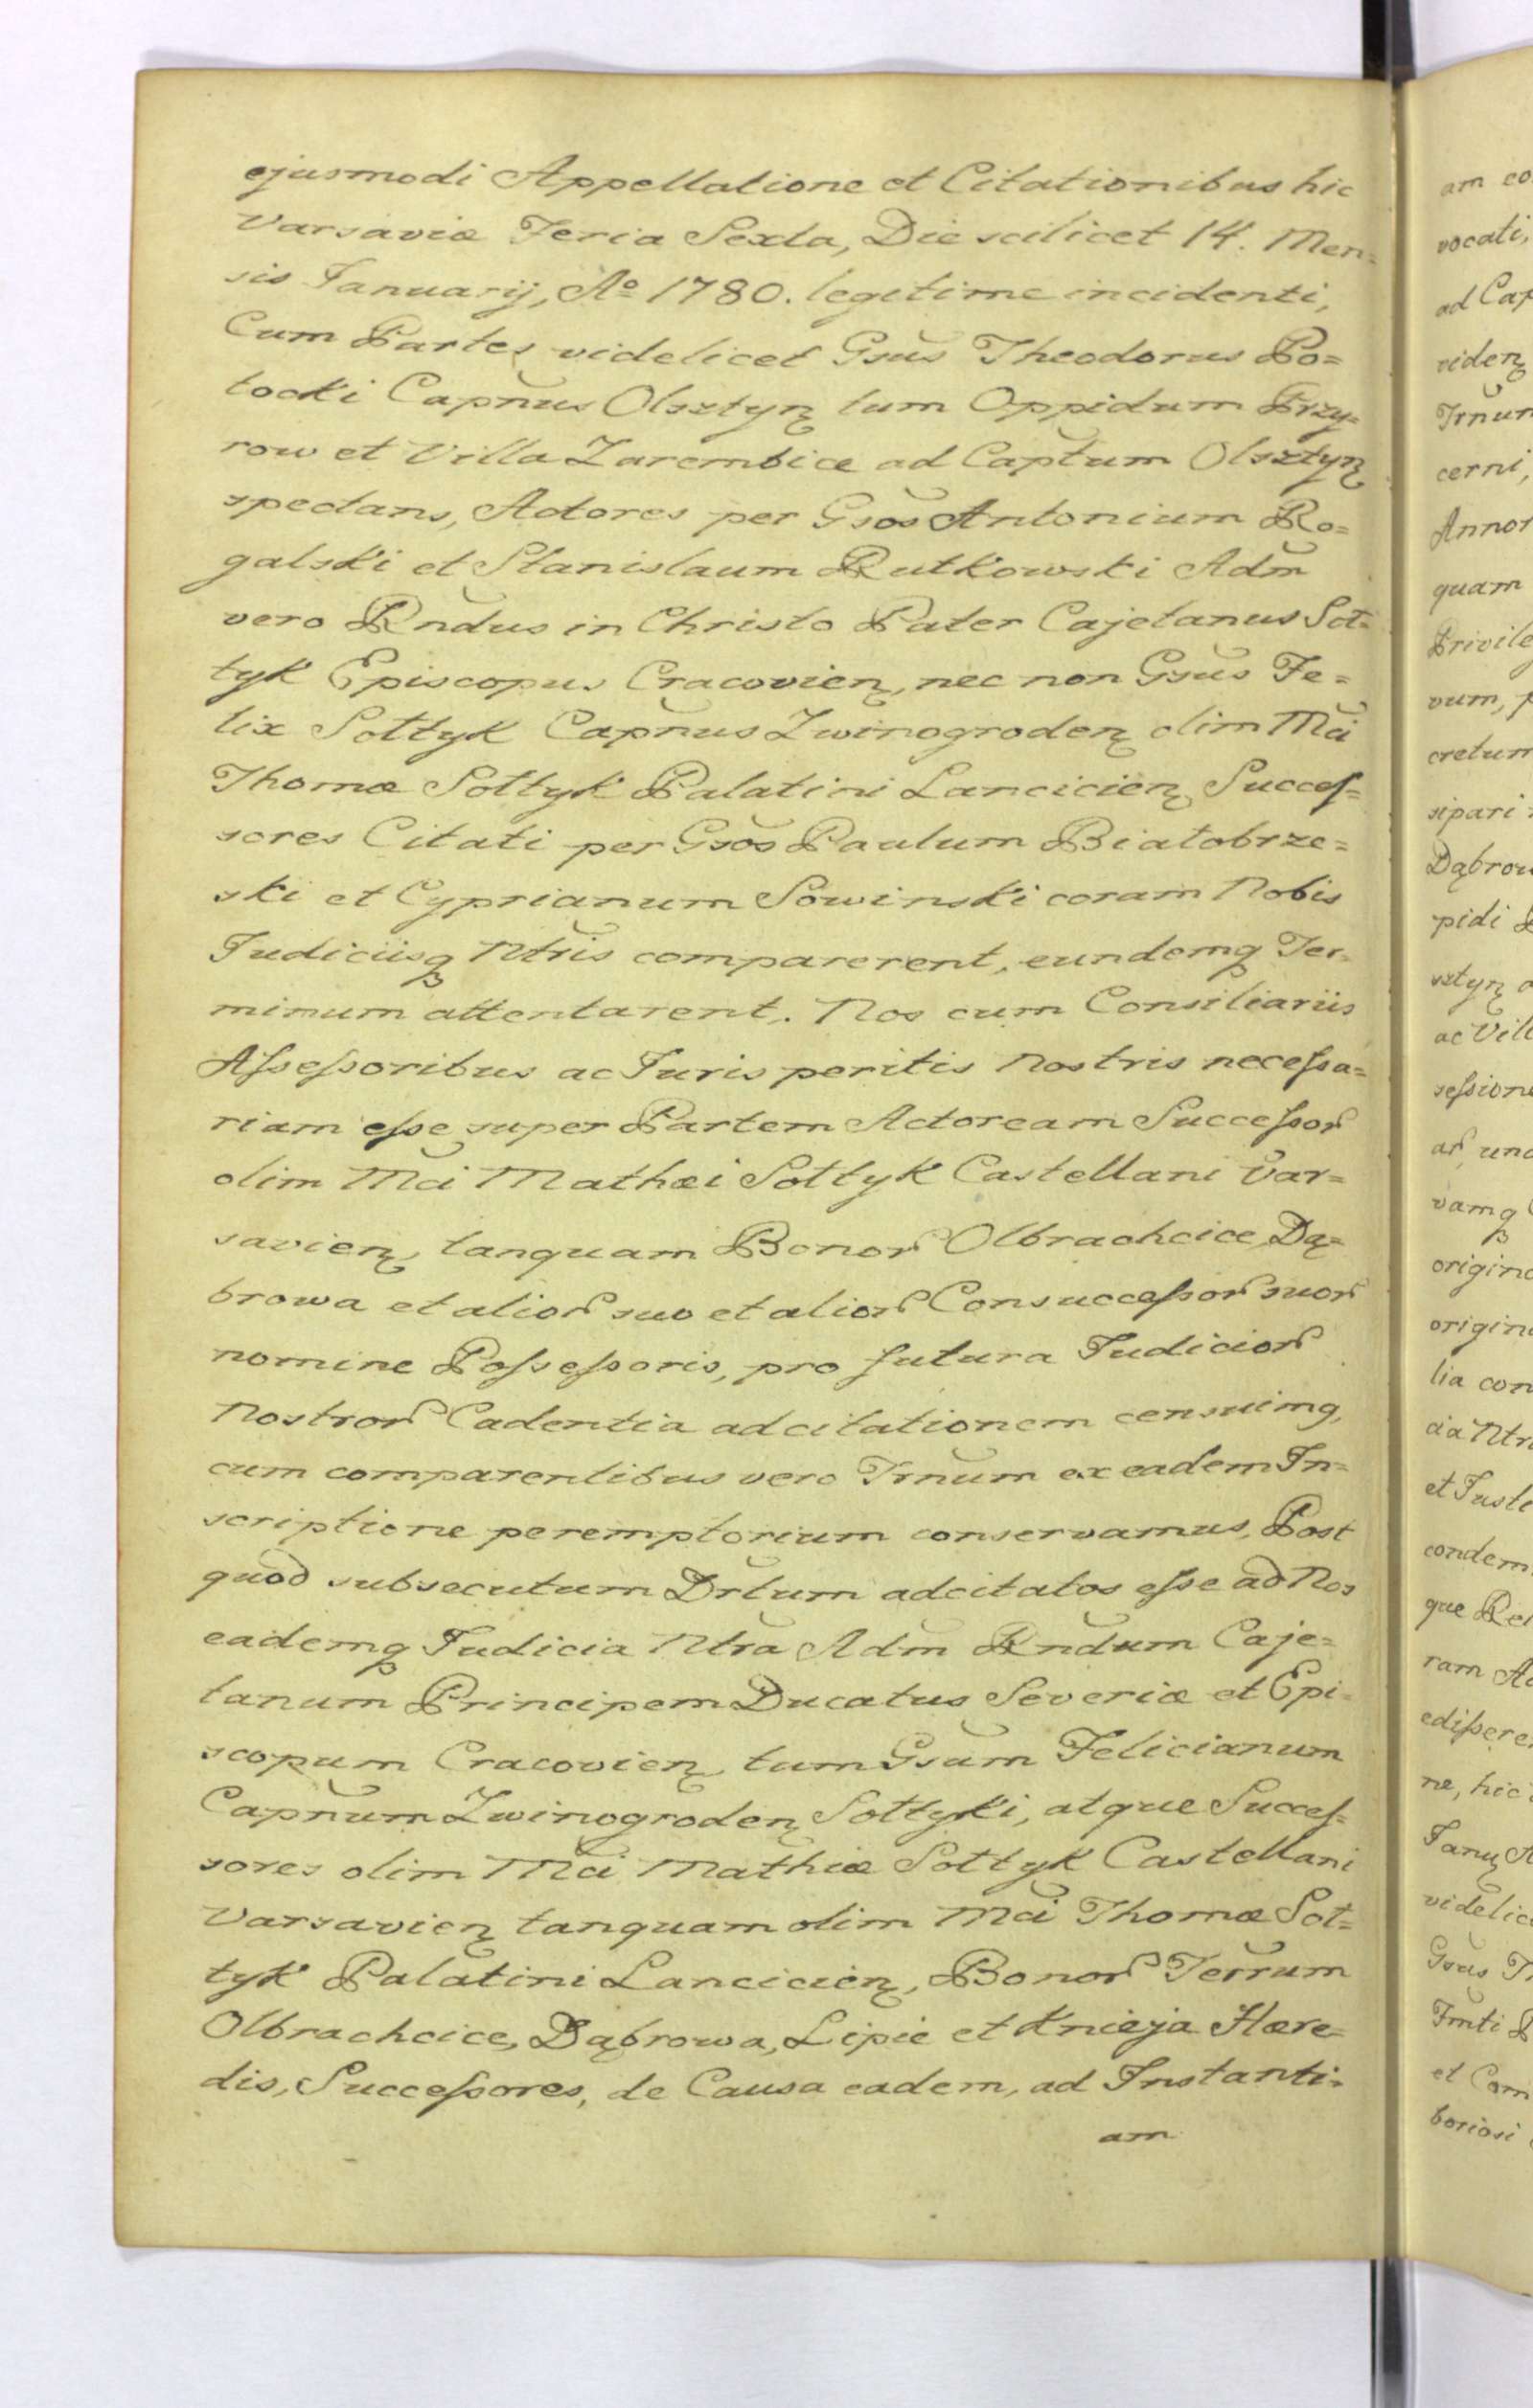 ejusmodi Appellatione et Citationibus hic
Varsaviæ Feria Sexta, Die scilicet 14. Men=
sis Januarij, Aº 1780. legitime incidenti,
Cum Partes videlicet Gsus Theodorus Po=
tocki Capnus Olsztyn tum Oppidum Przy=
row et Villa Zarembice ad Captum Olsztyn
spectans, Actores per Gsos Antonium Ro=
galski et Stanislaum Rutkowski Adm
vero Rndus in Christo Pater Cajetanus Soł=
tyk Episcopus Cracovien, nec non Gsus Fe=
lix Sołtyk Capnus Zwinogroden olim Mci
Thomæ Sołtyk Palatini Lancicien, Succes=
sores Citati per Gsos Paulum Białobrze=
ski et Cyprianum Sowinski coram Nobis
Judiciisq Ntris comparerent, eundemq Ter=
minum attentarent. Nos cum Consiliariis
Assessoribus ac Juris peritis Nostris necessa=
riam esse super Partem Actoream Successor
olim Mci Mathæi Sołtyk Castellani Var=
savien, tanquam Bonor Olbrachcice, Dą=
browa et alior suo et alior Consuccessor suor
nomine Possessoris, pro futura Judicior
Nostror Cadentia adcitationem censuimq,
cum comparentibus vero Trnum ex eadem In=
scriptione peremptorium conservamus, Post
quod subsecutum Drtum adcitatos esse ad Nos
eademq Judicia Ntra Adm Rndum Caje=
tanum Principem Ducatus Severiæ et Epi=
scopum Cracovien, tum Gsum Felicianum
Capnum Zwinogroden Sołtyki, atque Succes=
sores olim Mci Mathiæ Sołtyk Castellani
Varsavien tanquam olim Mci Thomæ Soł=
tyk Palatini Lancicien, Bonor Terrum
Olbrachcice, Dąbrowa, Lipie et Knieja Hære=
dis, Successores, de Causa eadem, ad Instanti=
am
am co
vocati,
ad Cap
viden
Trnum
cerni,
Annor
quam
Privile
vum, p
cretum
sipari
Dąbrow
pidi
sztyn
ac Vill
session
ar, und
vamq
origina
origin
lia con
cia Ntr
et Juste
condem
que Re
ram Ac
edissere
ne, hic
Janu A
videlic
Gsus T
Imti
et Com
boriosi